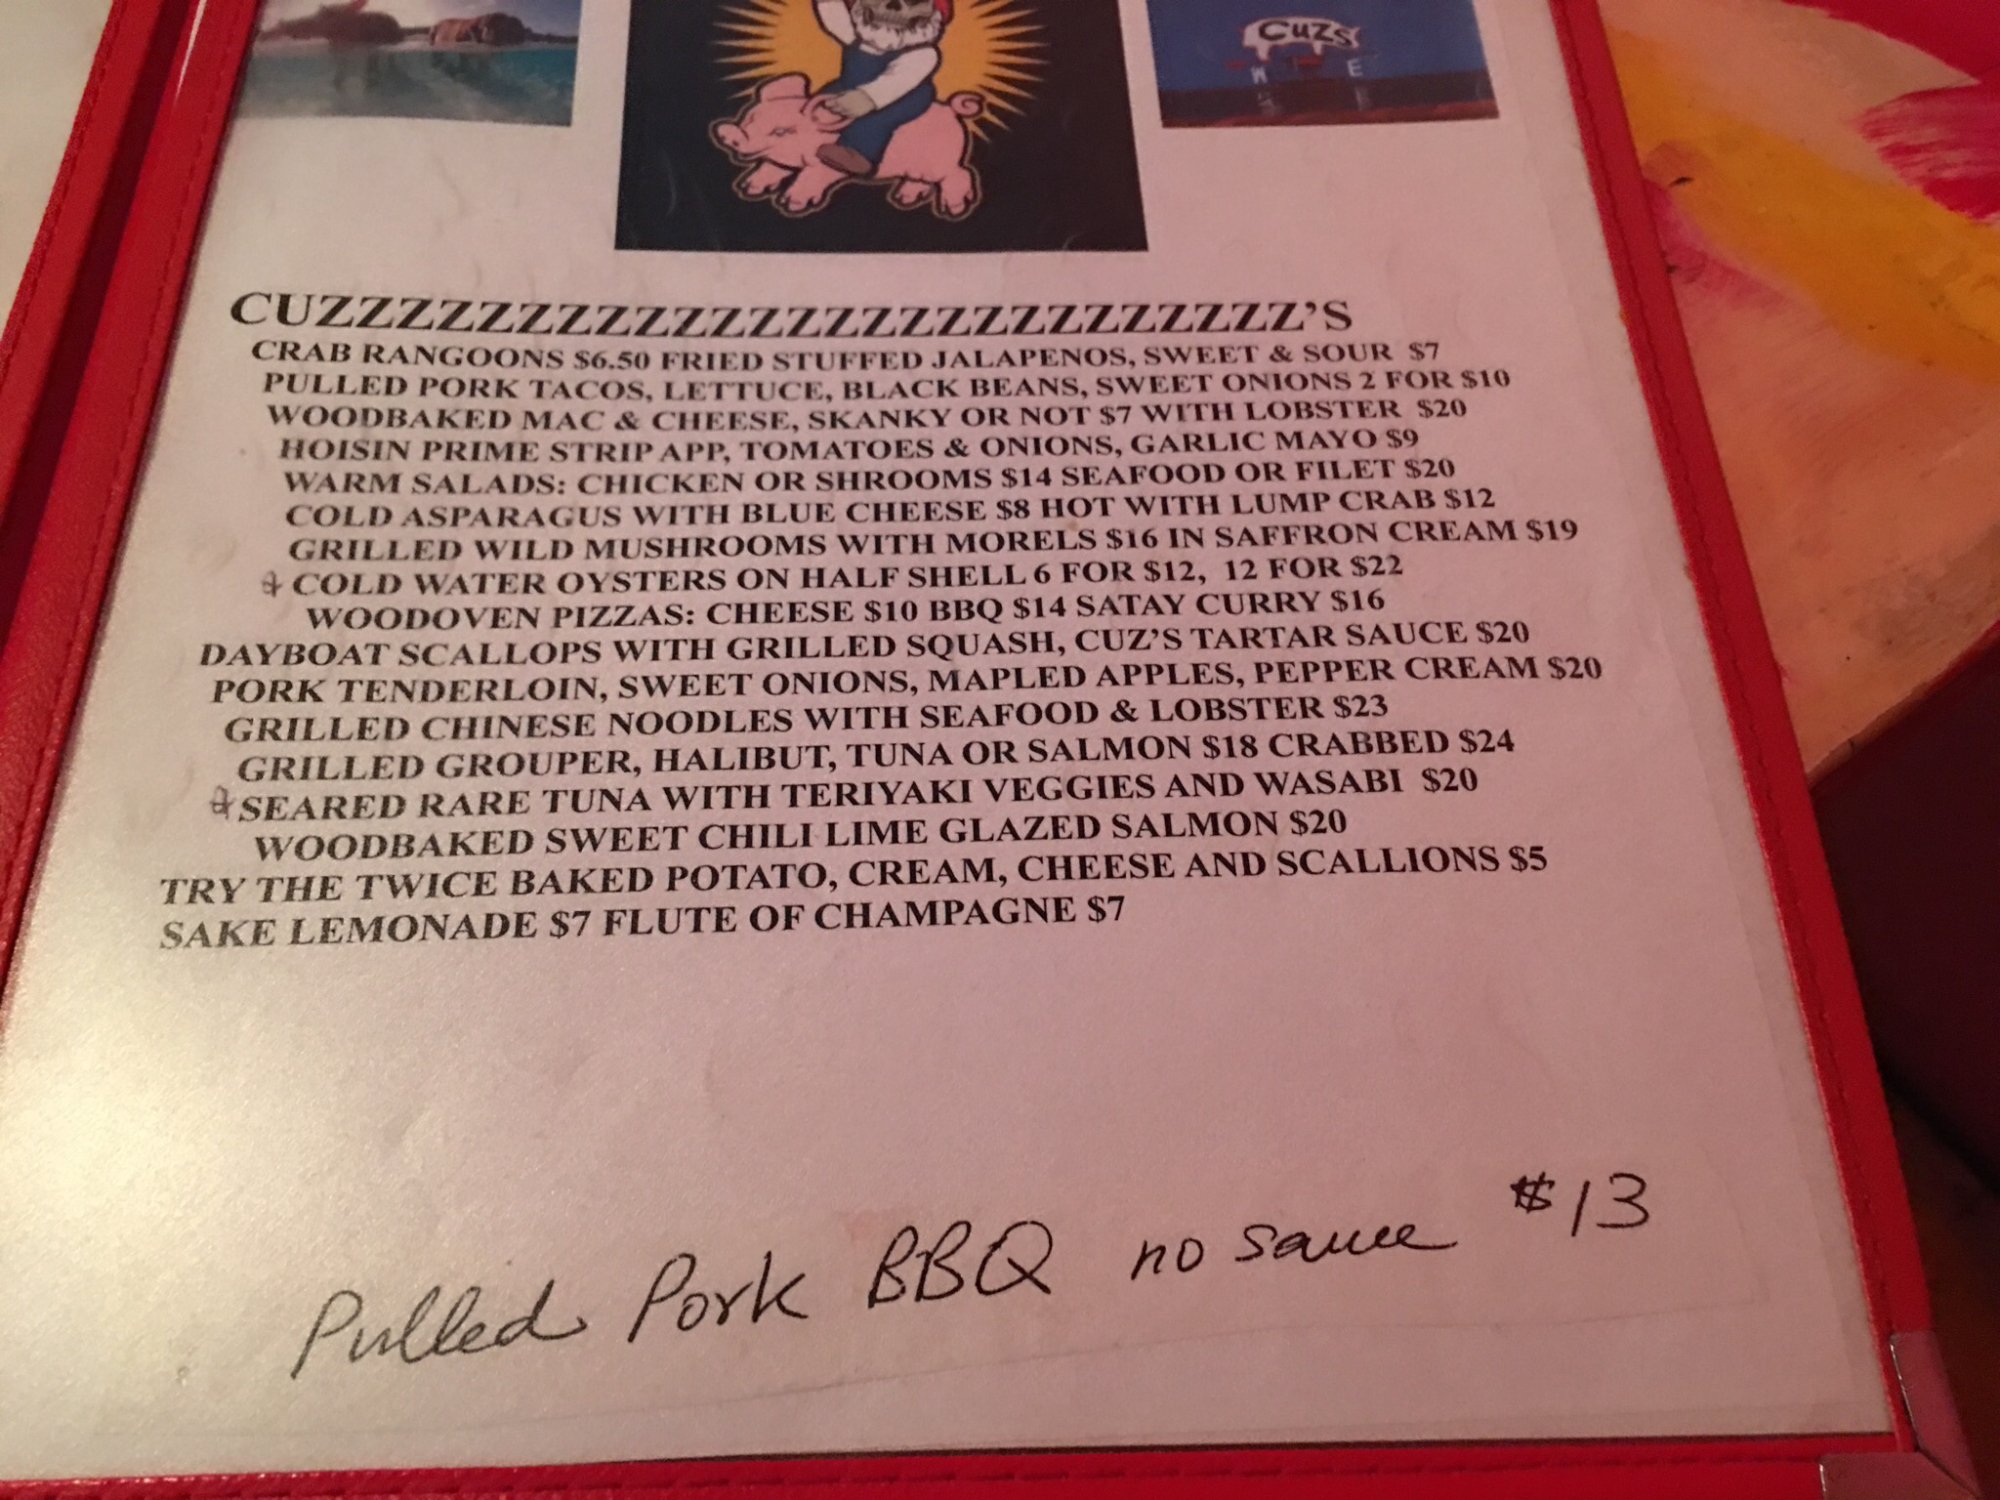 CUZS
W E
CUZZZZZZZZZZZZZZZZZZZZZZZZZZ'S
CRAB RANGOONS $6.50 FRIED STUFFED JALAPENOS, SWEET & SOUR $7
PULLED PORK TACOS, LETTUCE, BLACK BEANS, SWEET ONIONS 2 FOR $10
WOODBAKED MAC & CHEESE, SKANKY OR NOT $7 WITH LOBSTER $20
HOISIN PRIME STRIP APP, TOMATOES & ONIONS, GARLIC MAYO $9
WARM SALADS: CHICKEN OR SHROOMS $14 SEAFOOD OR FILET $20
COLD ASPARAGUS WITH BLUE CHEESE $8 HOT WITH LUMP CRAB $12
GRILLED WILD MUSHROOMS WITH MORELS $16 IN SAFFRON CREAM $19
COLD WATER OYSTERS ON HALF SHELL 6 FOR $12, 12 FOR $22
WOODOVEN PIZZAS: CHEESE $10 BBQ $14 SATAY CURRY $16
DAYBOAT SCALLOPS WITH GRILLED SQUASH, CUZ'S TARTAR SAUCE $20
PORK TENDERLOIN, SWEET ONIONS, MAPLED APPLES, PEPPER CREAM $20
GRILLED CHINESE NOODLES WITH SEAFOOD & LOBSTER $23
GRILLED GROUPER, HALIBUT, TUNA OR SALMON $18 CRABBED $24
SEARED RARE TUNA WITH TERIYAKI VEGGIES AND WASABI $20
WOODBAKED SWEET CHILI LIME GLAZED SALMON $20
TRY THE TWICE BAKED POTATO, CREAM, CHEESE AND SCALLIONS $5
SAKE LEMONADE $7 FLUTE OF CHAMPAGNE $7
Pulled Pork BBQ no sauce $13